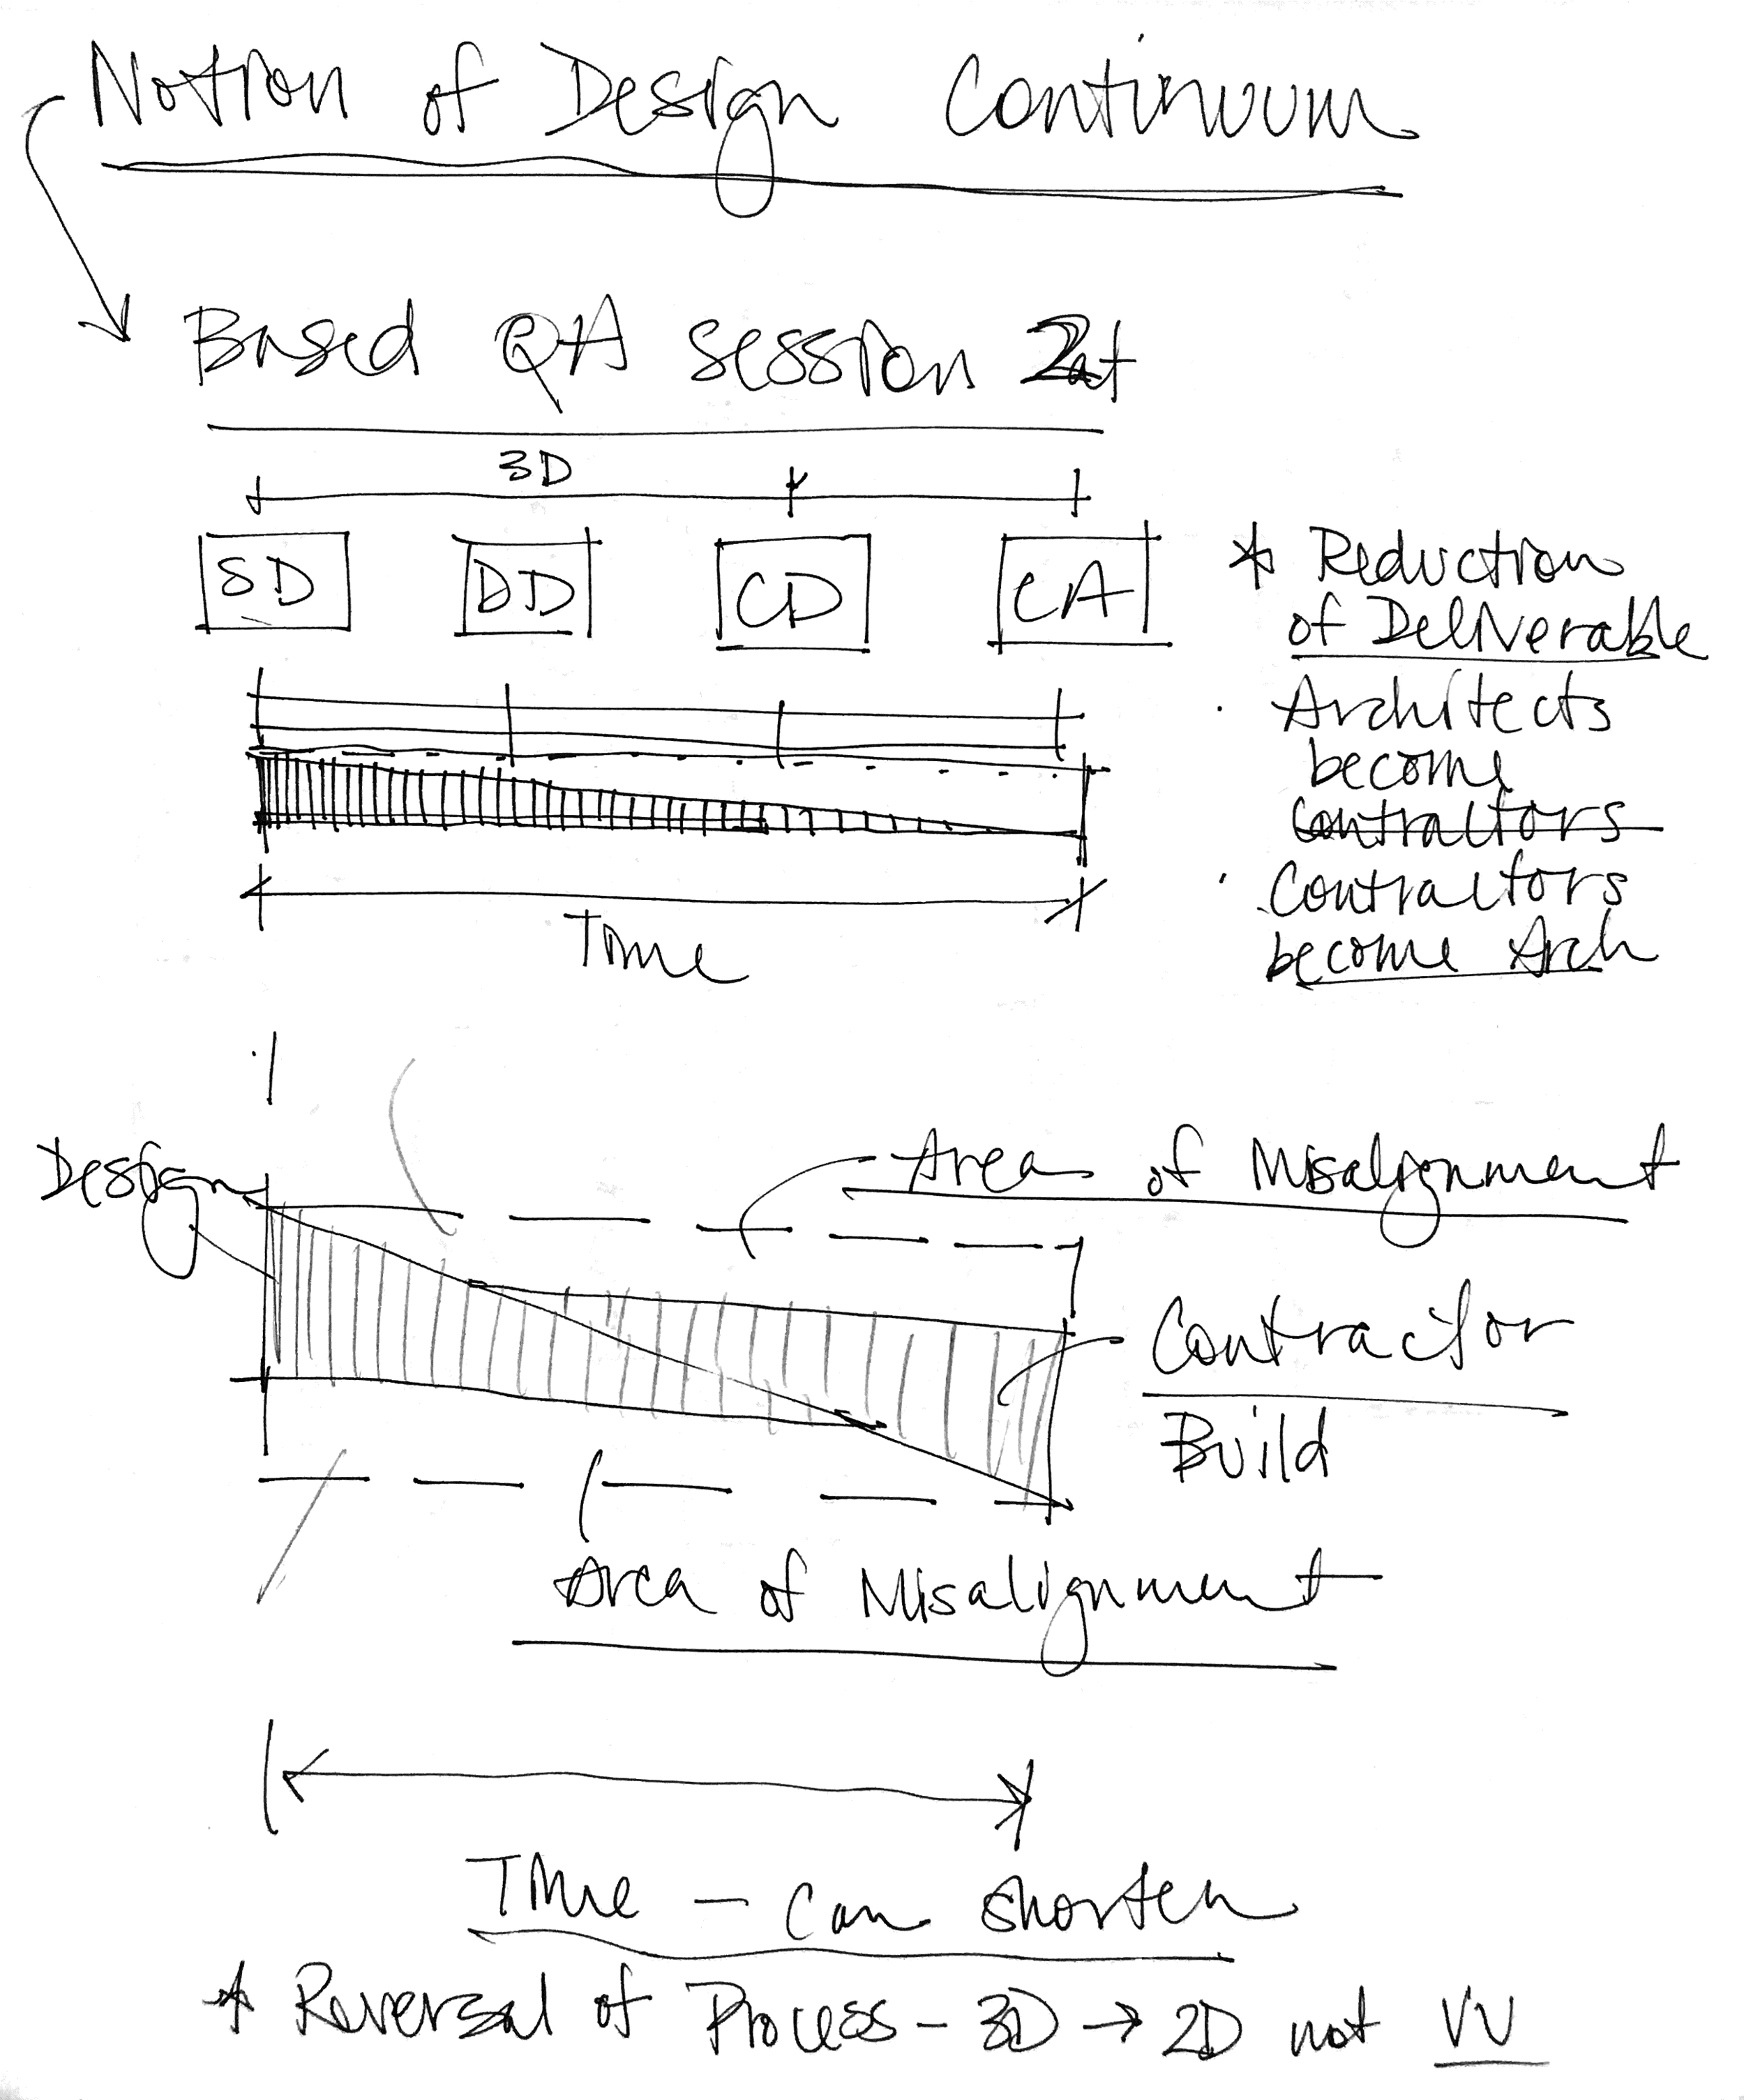 Notion of Design Continuum
Based QA session
3D
SD DD CD CA
* Reduction
of Deliverable
· Architects
become
Contractors
· Contractors
become Arch
Time
Design
Area of Misalignment
Contractor
Build
Area of Misalignment
Time – Can Shorten
* Reversal of Process – 3D → 2D not VV